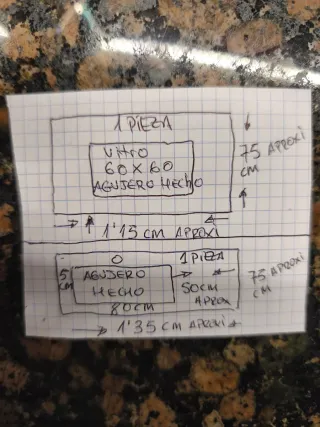 1 PIEZA
Vitro
60 X 60
AGUJERO HECHO
75 APROXI
CM
1'15 CM APROXI
O
1 PIEZA
5
CM
AGUJERO
HECHO
80CM
50CM
APROX
75 APROXI
CM
1'35 CM APROXI